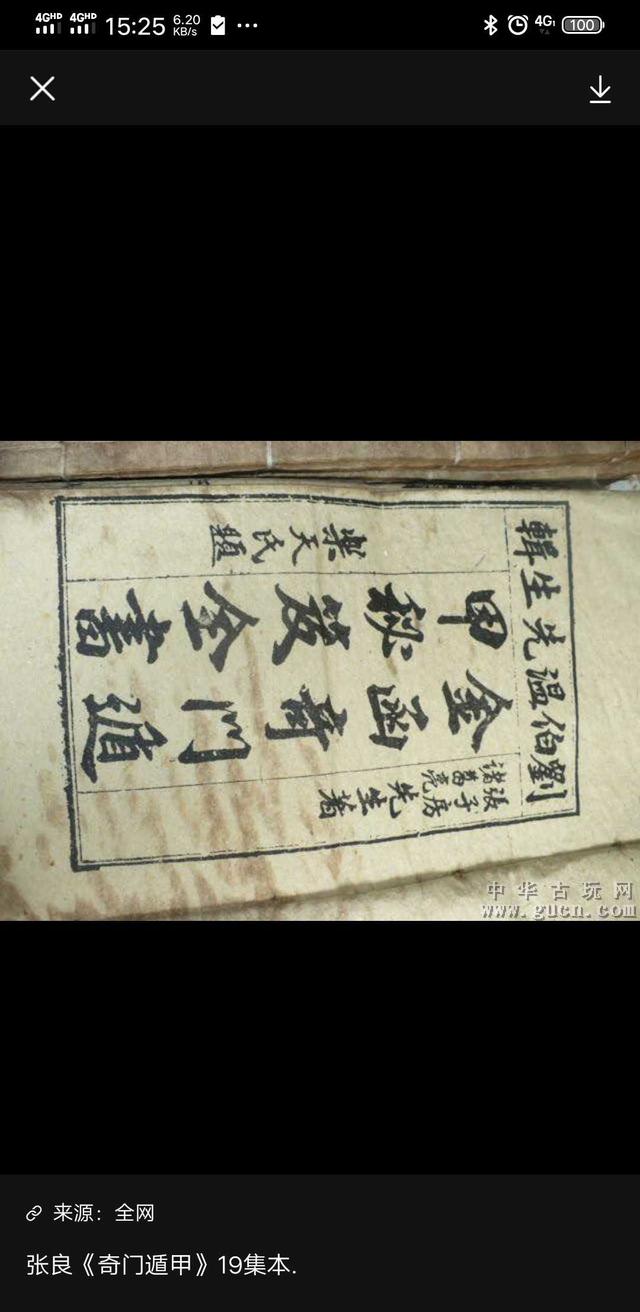 15:25
6.20 KB/s
4G
100
劉伯溫先生輯
張子房
諸葛亮
先生著
金函奇門遁
甲秘笈全書
樂天氏題
中华古玩网
www.gucn.com
来源：全网
张良《奇门遁甲》19集本.